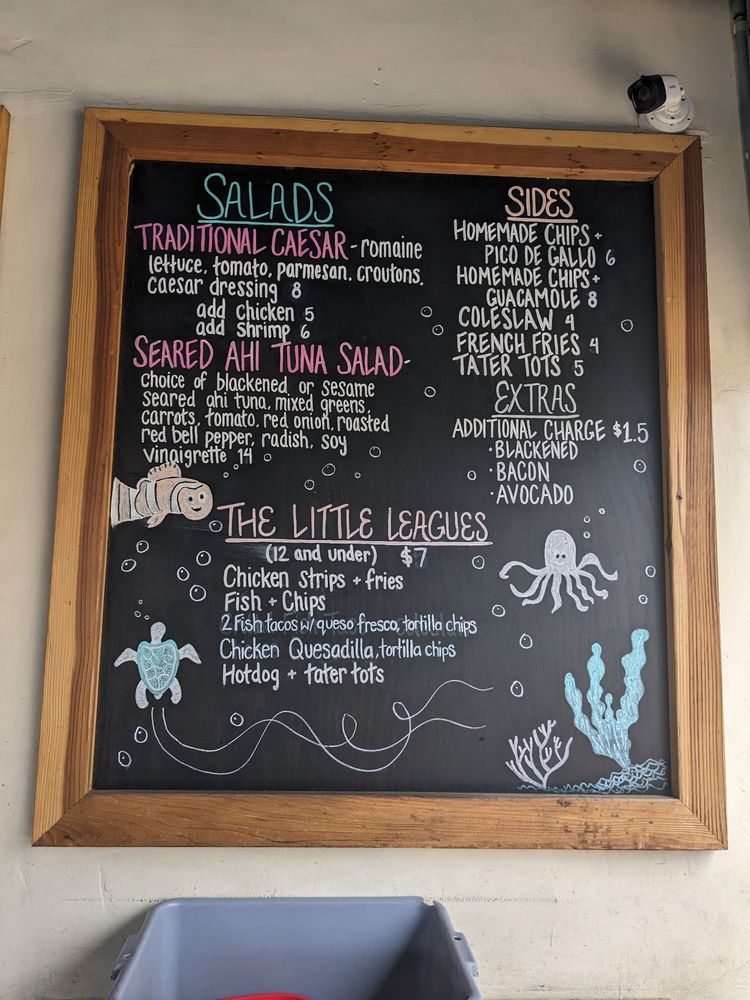 SALADS
TRADITIONAL CAESAR - romaine
lettuce, tomato, parmesan, croutons,
caesar dressing 8
add chicken 5
add shrimp 6
SEARED AHI TUNA SALAD-
choice of blackened or sesame
seared ahi tuna, mixed greens,
carrots, tomato, red onion, roasted
red bell pepper, radish, soy
vinaigrette 14
SIDES
HOMEMADE CHIPS +
PICO DE GALLO 6
HOMEMADE CHIPS +
GUACAMOLE 8
COLESLAW 4
FRENCH FRIES 4
TATER TOTS 5
EXTRAS
ADDITIONAL CHARGE $1.5
· BLACKENED
· BACON
· AVOCADO
THE LITTLE LEAGUES
(12 and under) $7
Chicken strips + fries
Fish + Chips
2 Fish tacos w/ queso fresco, tortilla chips
Chicken Quesadilla, tortilla chips
Hotdog + tater tots